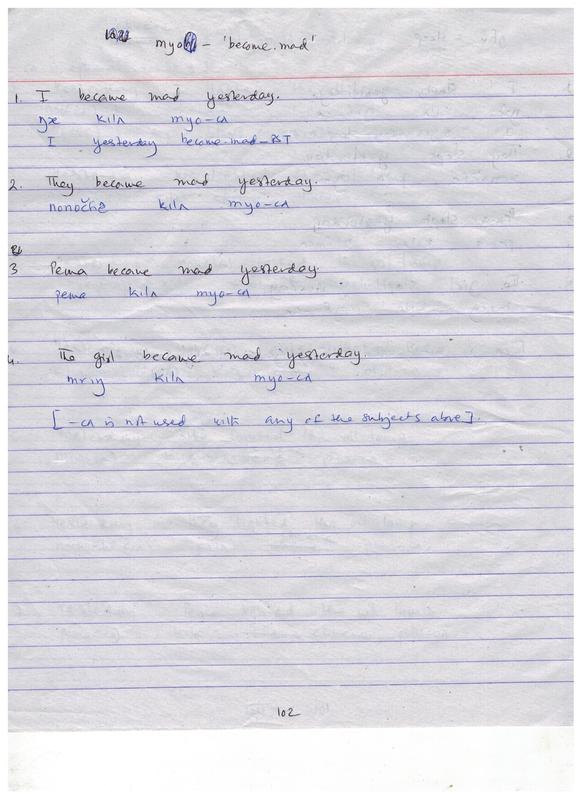 myo - 'become.mad'
1. I became mad yesterday.
ŋɐ kilʌ myo-cʌ
I yesterday become.mad-PST
2. They became mad yesterday.
nonočhɐ kilʌ myo-cʌ
3 Pema became mad yesterday.
pema kilʌ myo-cʌ
4. The girl became mad yesterday.
kilʌ myo-cʌ
[-cʌ is not used with any of the subjects above].
102